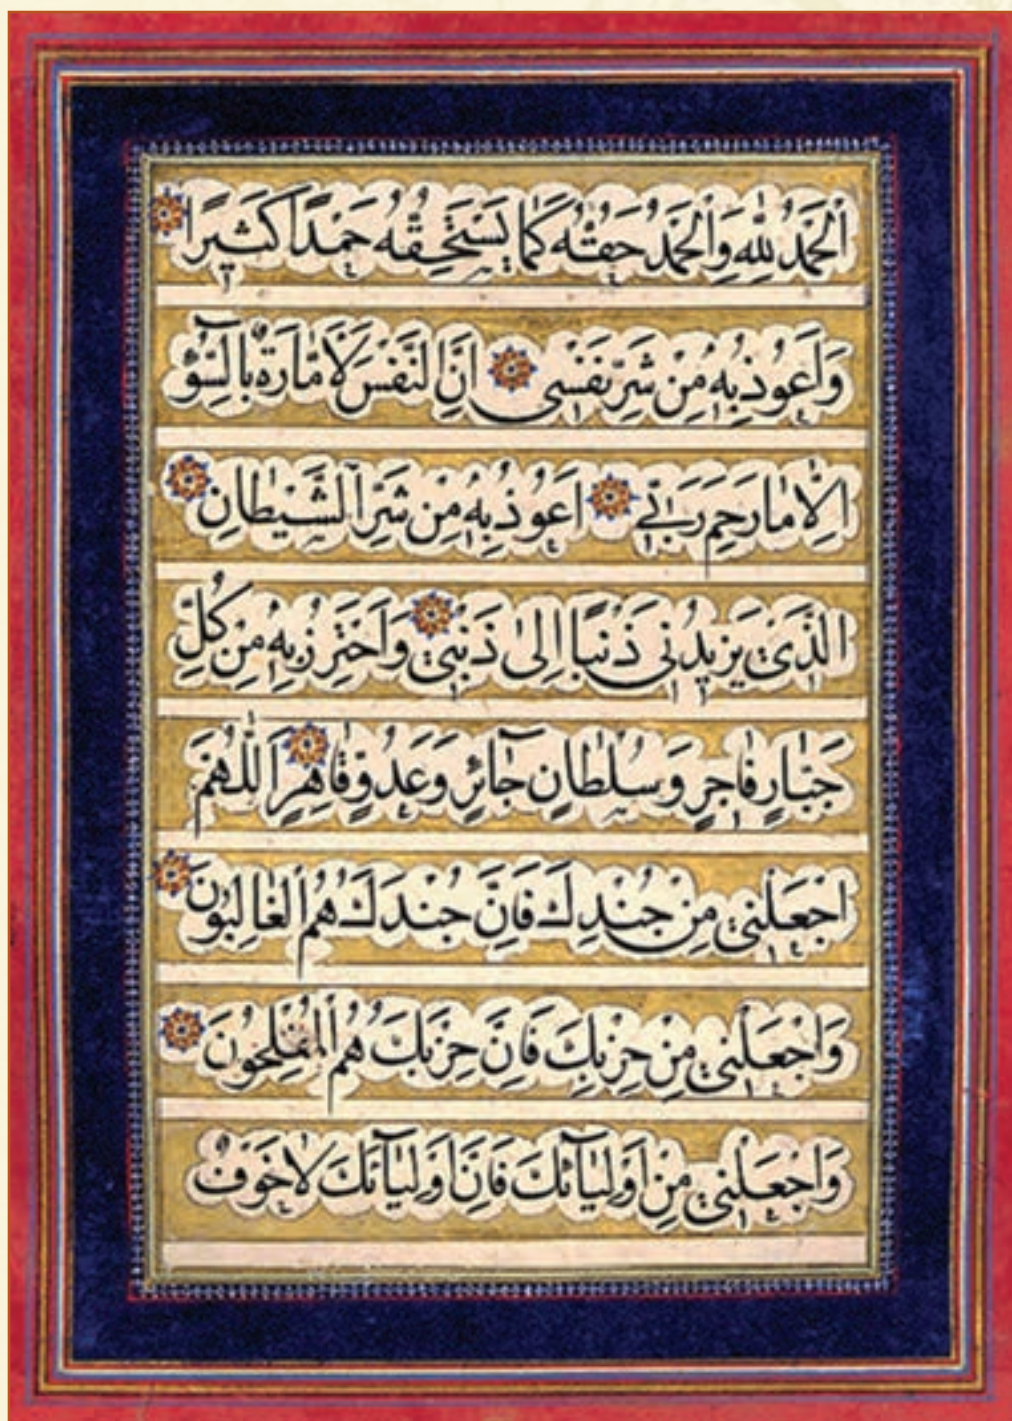 اَلْحَمْدُ لِلّٰهِ وَالْحَمْدُ حَقُّهُ كَمٰا يَسْتَحِقُّهُ حَمْدًا كَثيرًا
وَاَعُوذُ بِهِ مِنْ شَرِّ نَفْسي اِنَّ النَّفْسَ لَاَمّٰارَةٌ بِالسُّوۤءِ
اِلّٰا مٰا رَحِمَ رَبّي اَعُوذُ بِهِ مِنْ شَرِّ الشَّيْطٰانِ
الَّذي يَزيدُني ذَنْبًا اِلىٰ ذَنْبي وَاَحْتَرِزُ بِهِ مِنْ كُلِّ
جَبّٰارٍ فٰاجِرٍ وَسُلْطٰانٍ جٰائِرٍ وَعَدُوٍّ قٰاهِرٍ اَللّٰهُمَّ
اجْعَلْني مِنْ جُنْدِكَ فَاِنَّ جُنْدَكَ هُمُ الْغٰالِبُونَ
وَاجْعَلْني مِنْ حِزْبِكَ فَاِنَّ حِزْبَكَ هُمُ الْمُفْلِحُونَ
وَاجْعَلْني مِنْ اَوْلِيٰاۤئِكَ فَاِنَّ اَوْلِيٰاۤئَكَ لٰا خَوْفٌ